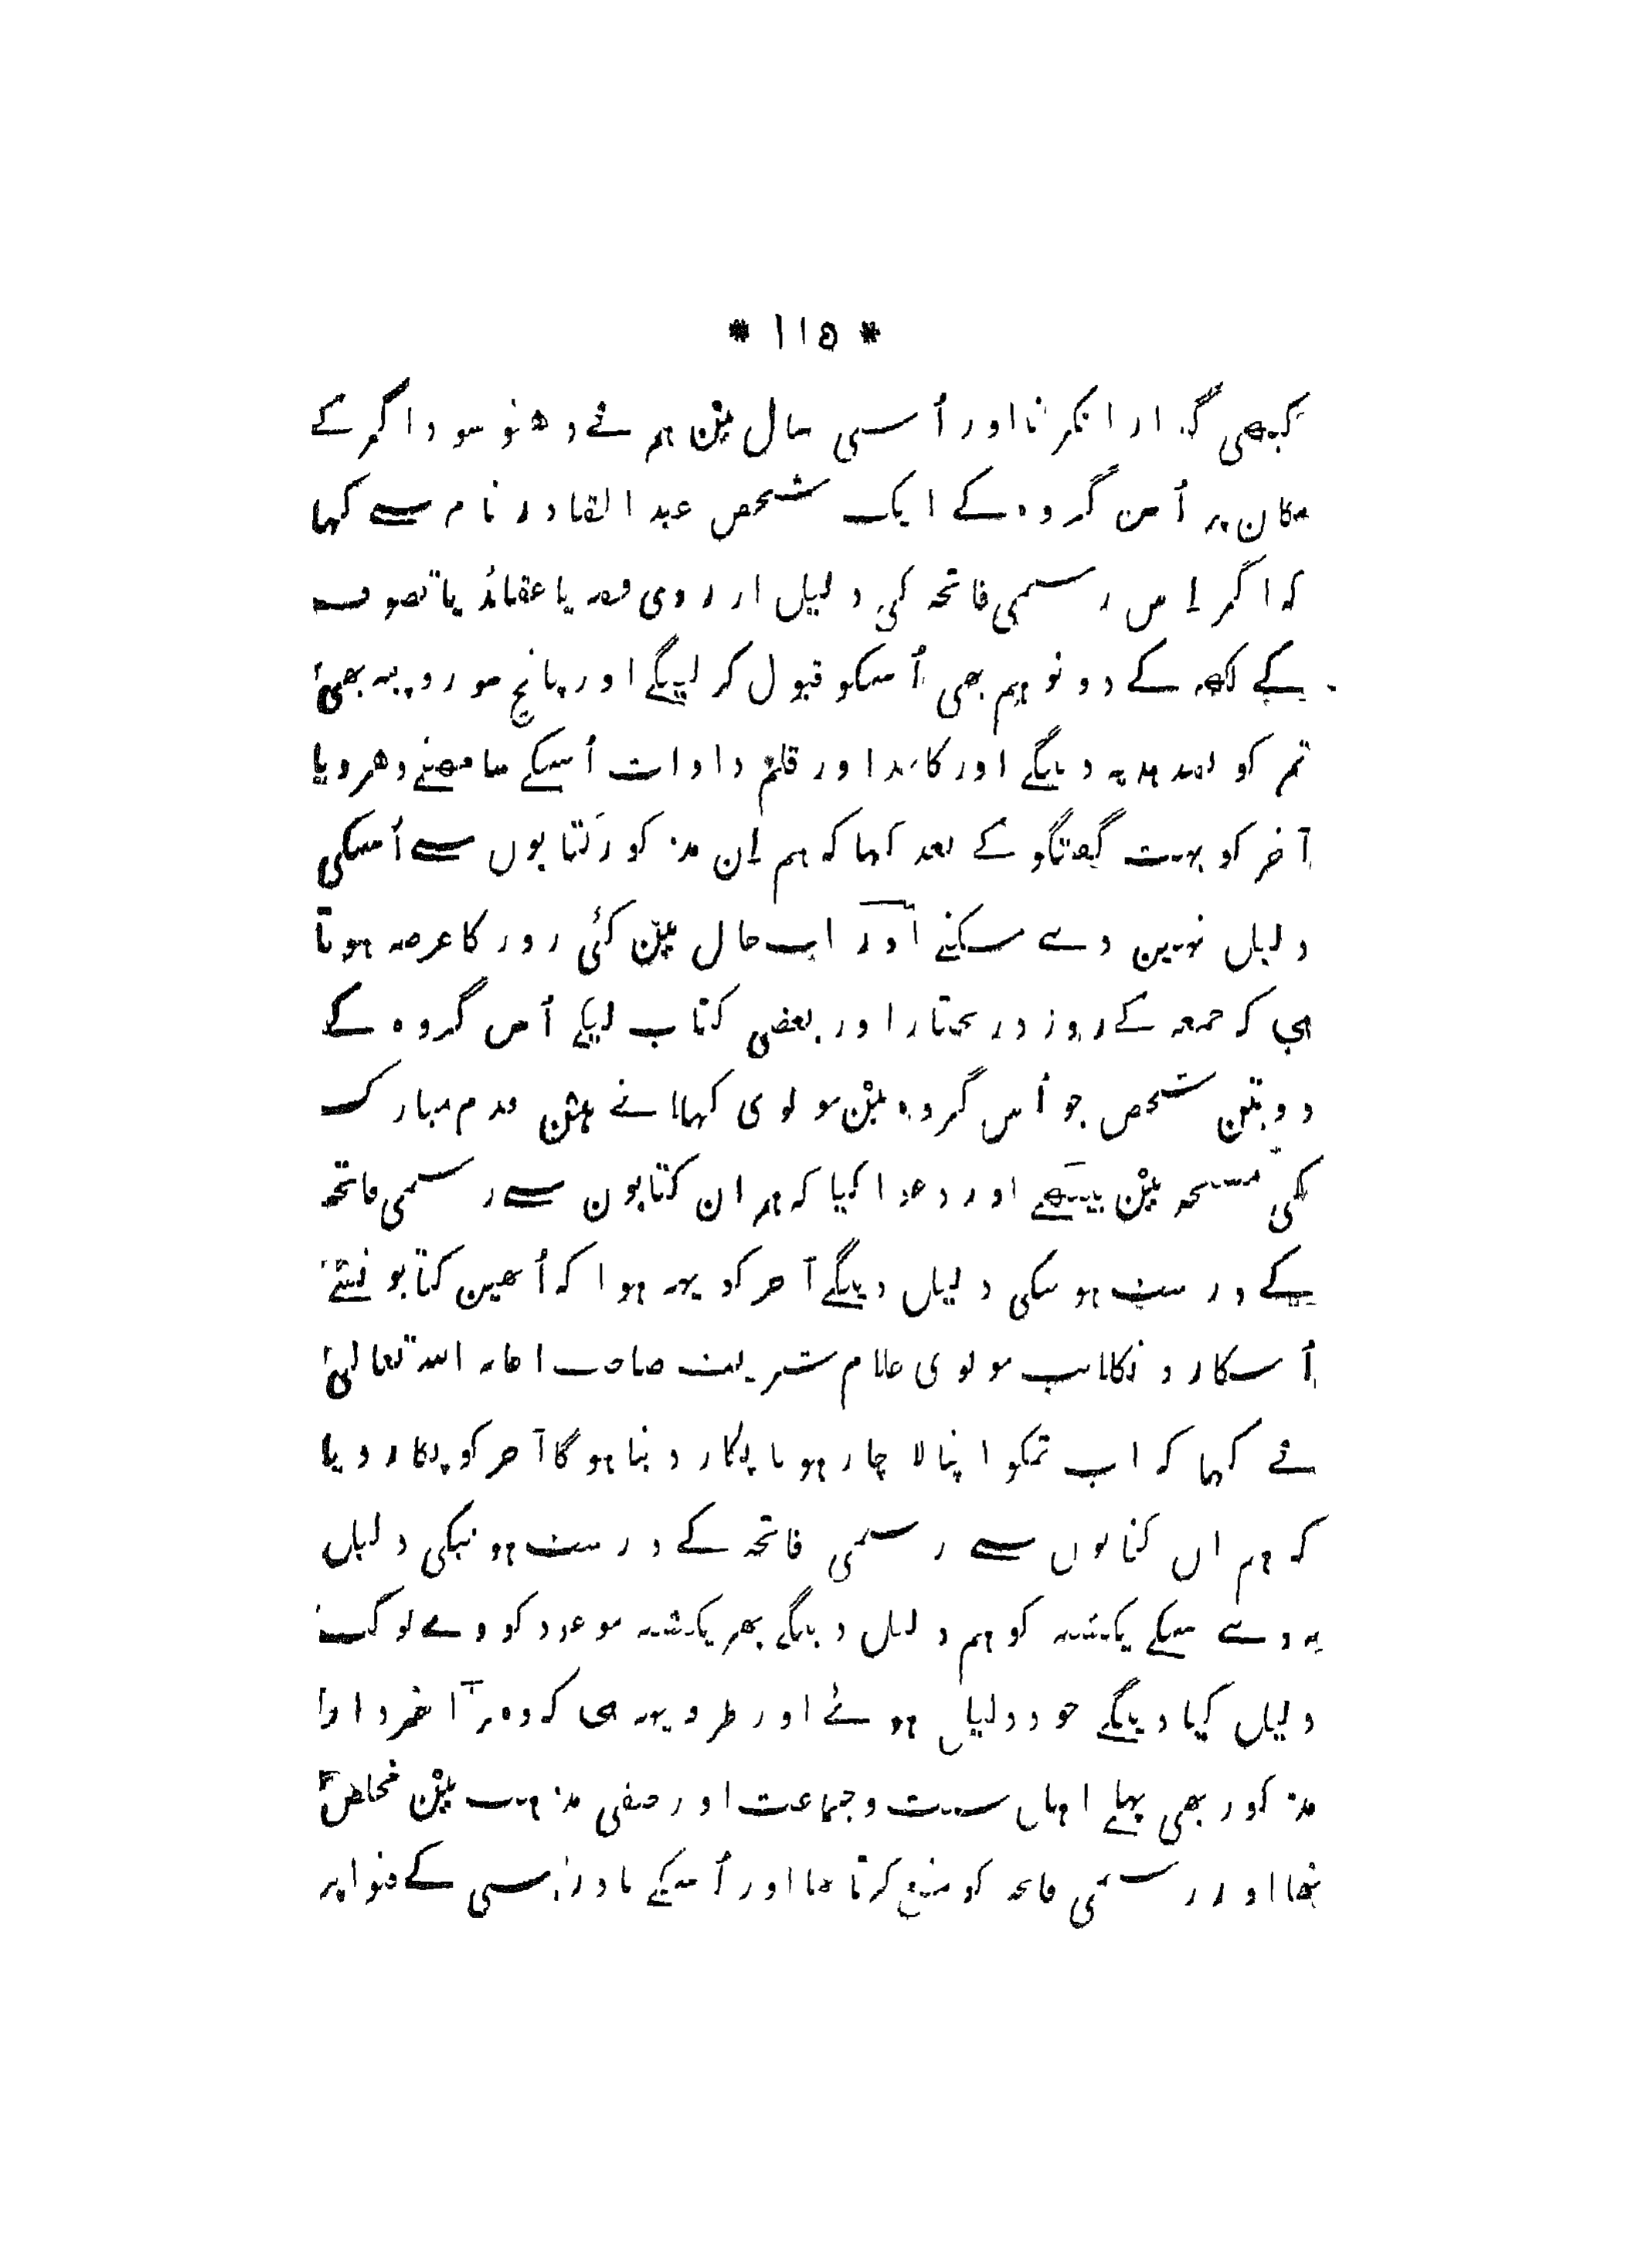 * ١١٥ *
کبھی گوارا نکرنا اور اُسی سال مین ہم نے دھنو سوداگر کے
مکان پر اُس گروہ کے ایک شخص عبد القادر نام سے کہا
کہ اگر اِس رسمی فاتحہ کی دلیل از روی فقہ یا عقائد یا تصوف
کے لکھہ کے دو تو ہم بھی اُسکو قبول کر لینگے اور پانچ سو روپیہ بھی
تم کو ہدیہ دینگے اور کاغذ اور قلم داوات اُسکے سامھنے دھر دیا
آخر کو بہت گفتگو کے بعد کہا کہ ہم اِن مذکور کتابوں سے اُسکی
دلیل نہین دے سکتے اور اب حال مین کئی روز کا عرصہ ہوتا
ہی کہ جمعہ کے روز در مختار اور بعضی کتاب لیکے اُس گروہ کے
دو تین شخص جو اُس گروہ مین مولوی کہلاتے ہین قدم مبارک
کی مسجد مین بیٹھے اور دعوا کیا کہ ہم ان کتابون سے رسمی فاتحہ
کے درست ہونیکی دلیل دینگے آخر کو یہہ ہوا کہ اُنھین کتابونسے
اُسکا رد نکلا تب مولوی غلام شریف صاحب اللہ تعالیٰ
نے کہا کہ اب تمکو اپنا لاچار ہونا پکار دینا ہو گا آخر کو پکار دیا
کہ ہم ان کتابوں سے رسمی فاتحہ کے درست ہونیکی دلیل
نہ دے سکے یکشنبہ کو ہم دلیل دینگے پھر یکشنبہ موعود کو وے لوگ
دلیل کیا دینگے خود ذلیل ہوئے اور طرفہ یہہ ہی کہ وہ آخر
مذکور بھی پہلے اہل سنت و جماعت اور حنفی مذہب مین مخلص
تھا اور رسمی فاتحہ کو منع کرتا تھا اور اُسکے سی کے فتوا پر